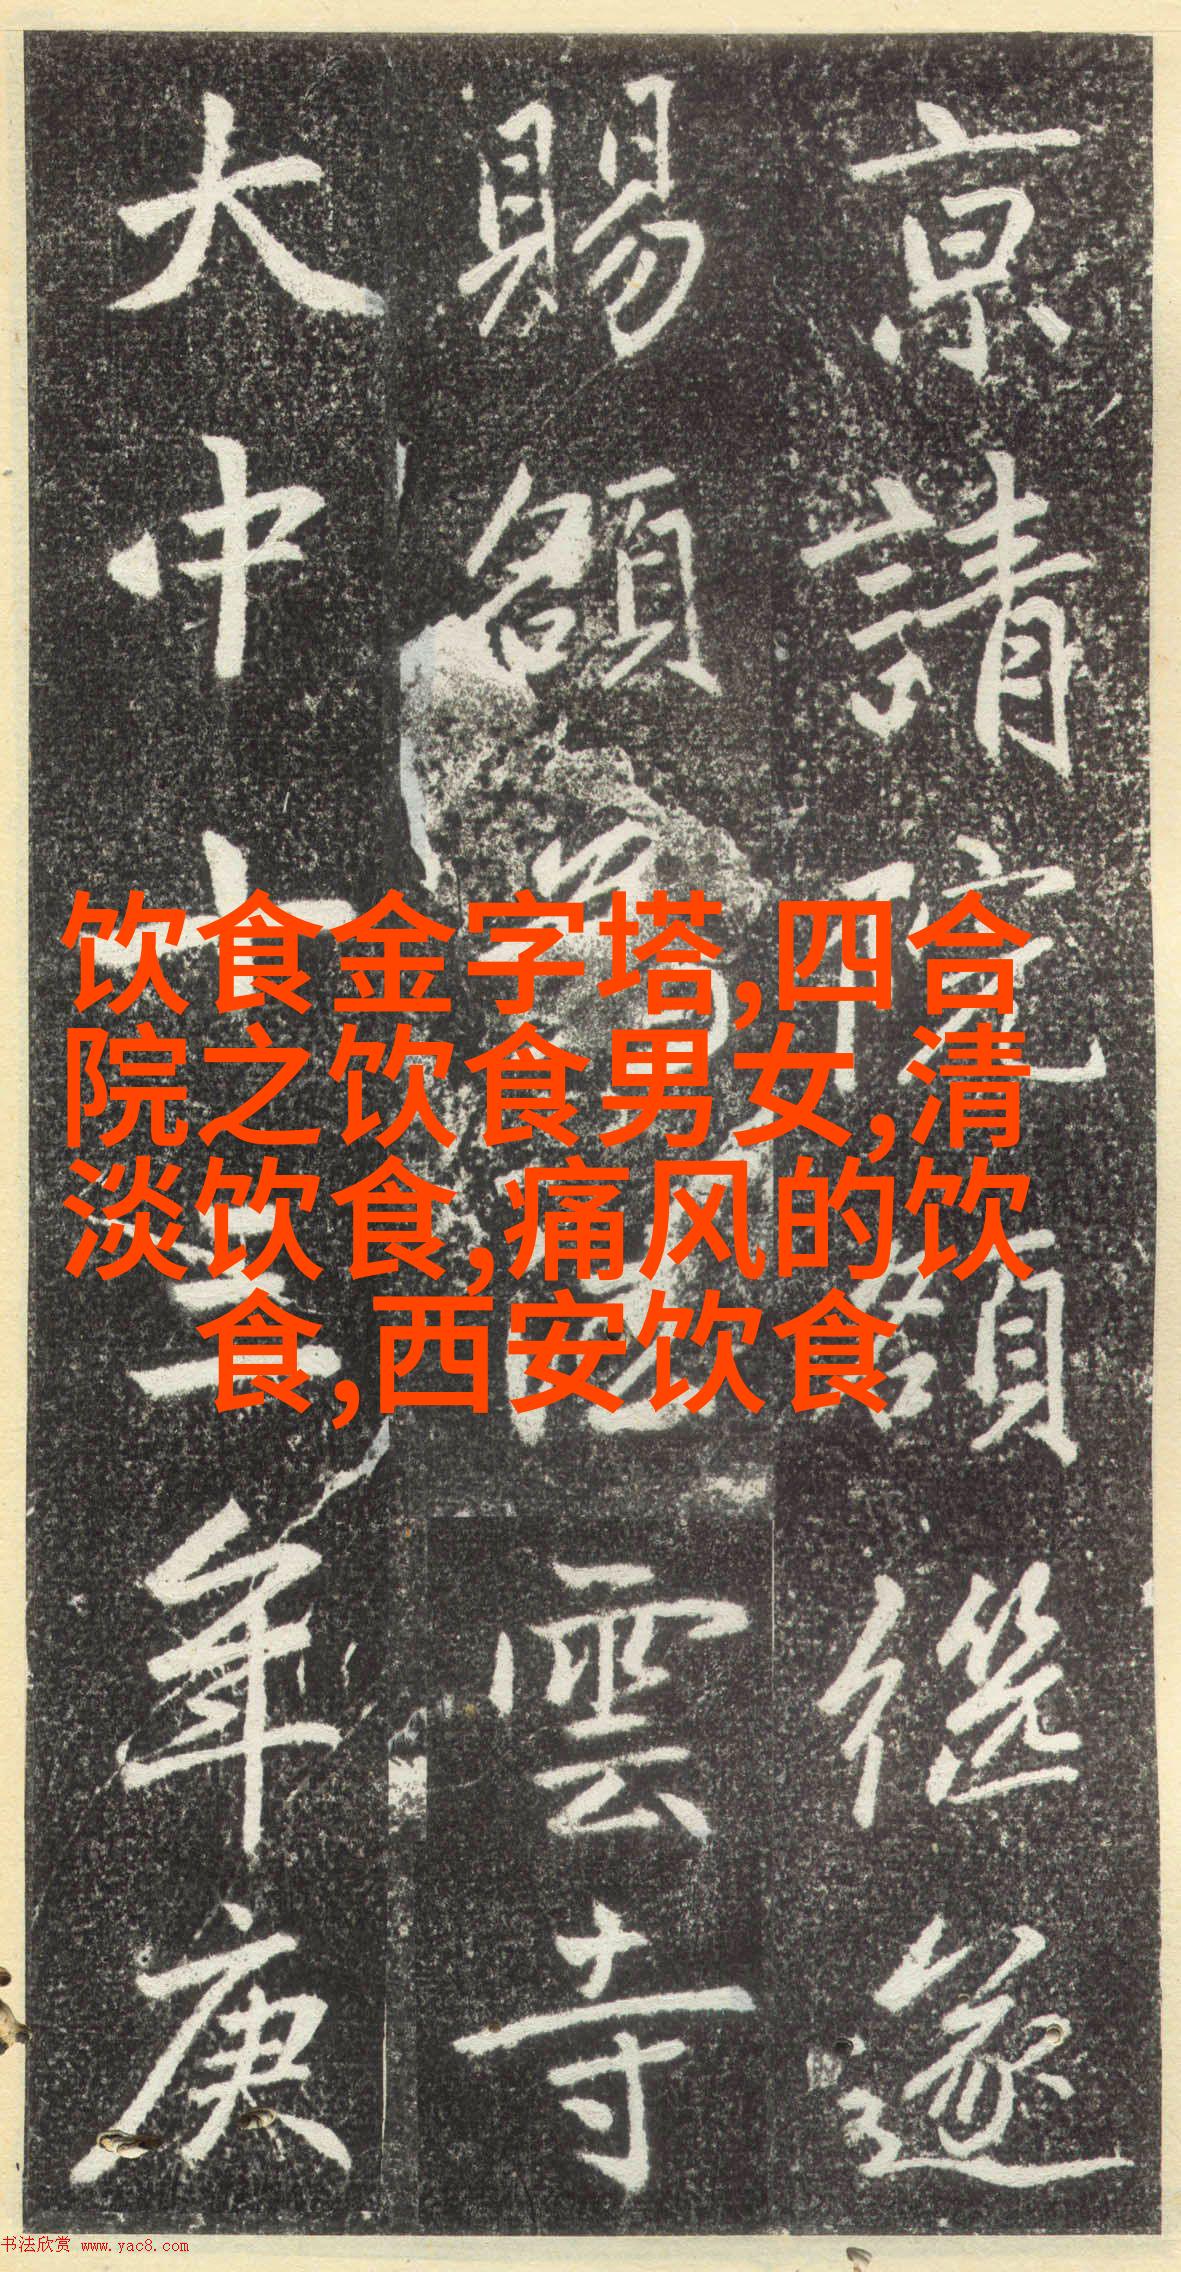 京請院額遂
賜額雲寺
大中十三年庚
饮食金字塔,四合
院之饮食男女,清
淡饮食,痛风的饮
食,西安饮食
书法欣赏 www.yac8.com